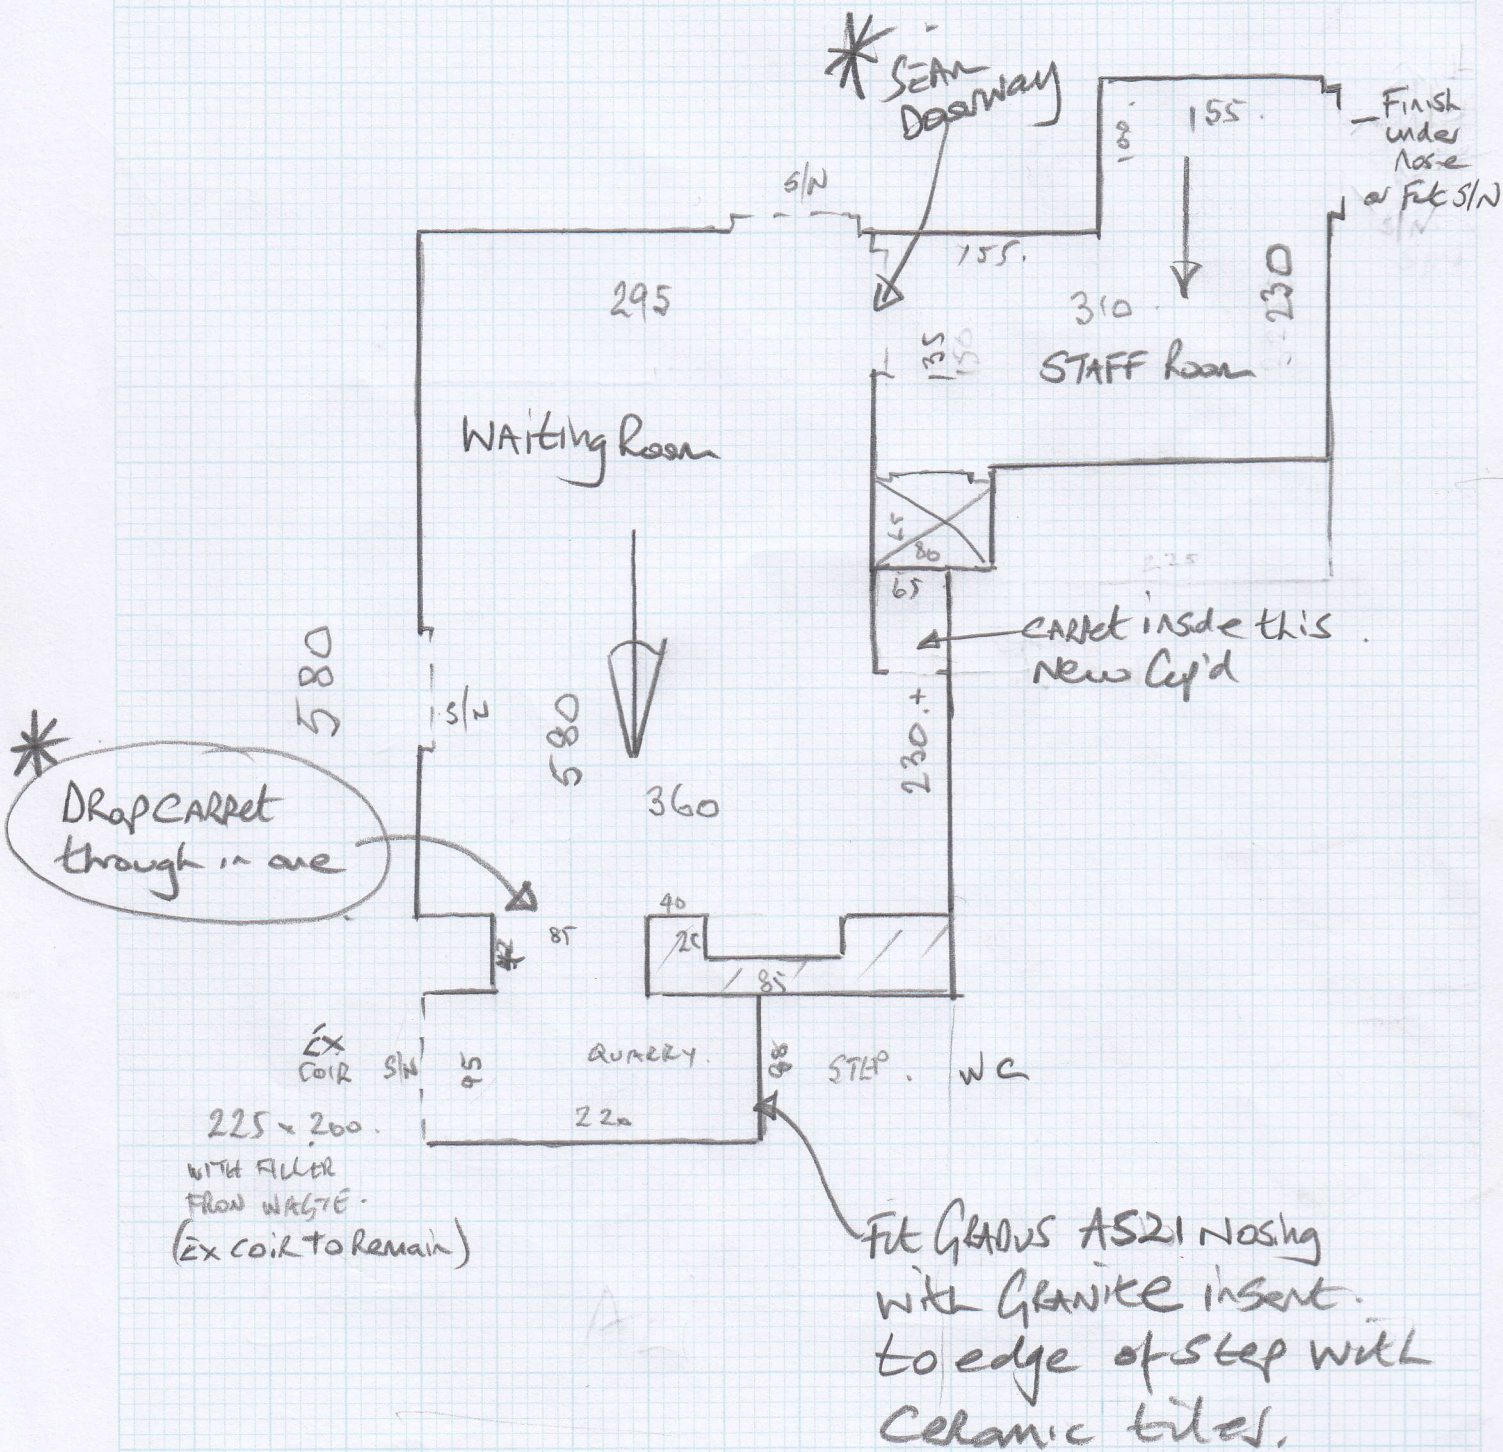 * SEAM
Doorway
155.
Finish
under
nose
or Fit S/N
S/N
S/N
155.
295
310
230
135
150
STAFF Room
Waiting Room
65
80
65
225
CARPET inside this
New Cup'd
580
S/N
580
230.+
360
*
DROP CARPET
through in one
40
85
20
85
EX
COIR
S/N
95
QUARRY.
88
STEP.
WC
225 x 200.
220
WITH FILLER
FROM WASTE.
(EX COIR TO Remain)
Fit GRADUS AS21 Nosing
with GRANITE insert.
to edge of step with
Ceramic tiles.